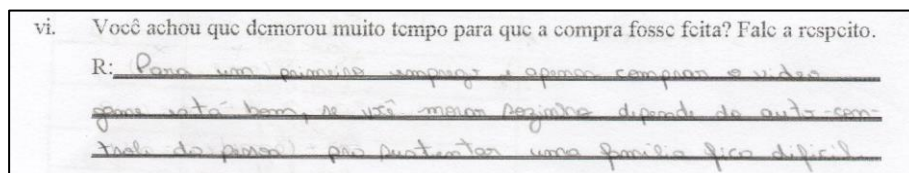 vi. Você achou que demorou muito tempo para que a compra fosse feita? Fale a respeito.
R: Para um primeiro emprego e apenas comprar o video
game está bom, se você morar sozinho depende do auto-con-
trole da pessoa pra sustentar uma família fica difícil